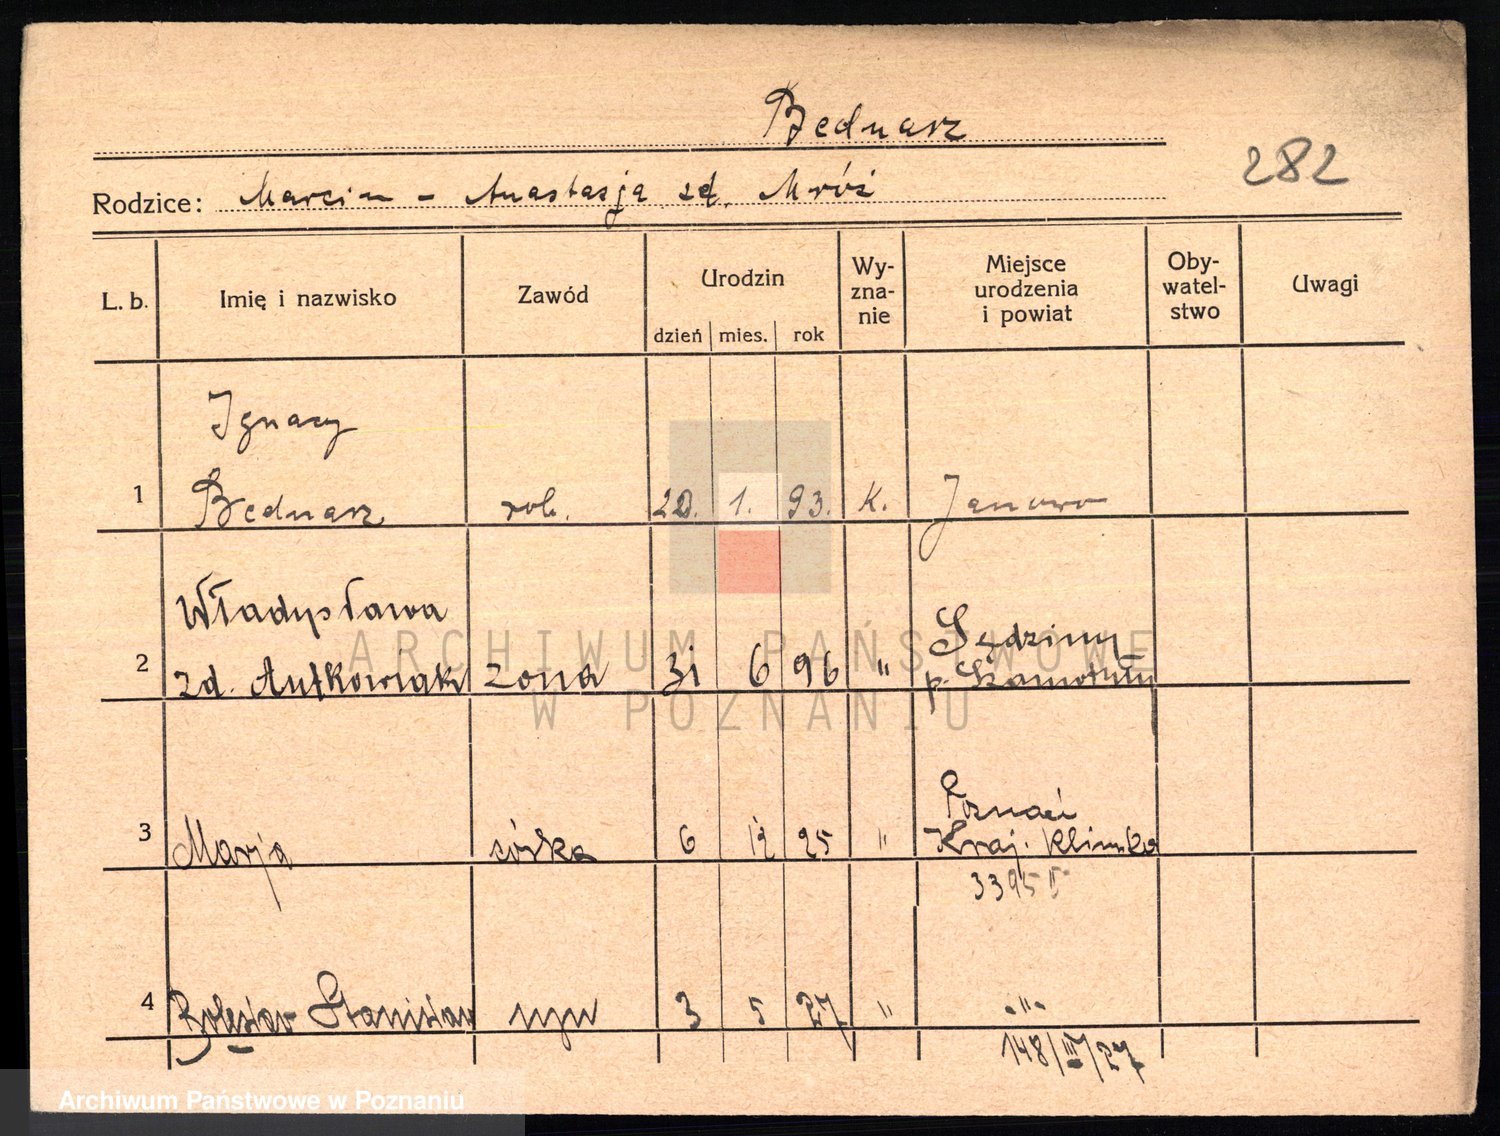 Bednarz
282
Rodzice: Marcin - Anastazja zd. Mróz
L. b. Imię i nazwisko Zawód Urodzin dzień mies. rok Wy-zna-nie Miejsce urodzenia i powiat Oby-watel-stwo Uwagi
Ignacy
1 Bednarz rob. 20. 1. 93. K. Janowo
Władysława
2 zd. Antkowiak żona 31 6 96 "
p. Szamotuły
Poznań
3 Marja córka 6 12 25 "
3395
4 Bolesław Stanisław syn 3 5 27 " "
148/III/27
ARCHIWUM PAŃSTWOWE
W POZNANIU
Archiwum Państwowe w Poznaniu